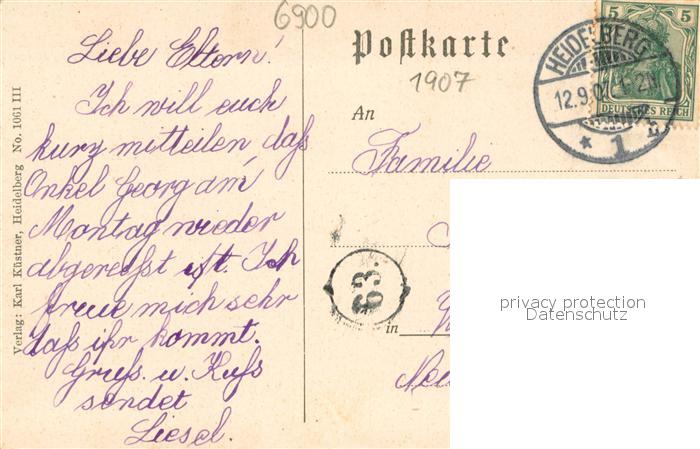 6900
Liebe Eltern!
Ich will euch
kurz mitteilen daß
Onkel Georg am
Montag wieder
abgereist ist. Ich
freue mich sehr
daß ihr kommt.
Gruß. u. Kuß
sendet
Liesel.
Verlag: Karl Küstner, Heidelberg No. 1061 III
Postkarte
1907
An
Familie
in
5 5
DEUTSCHES REICH
HEIDELBERG
12.9.07
* 1
63.
privacy protection
Datenschutz